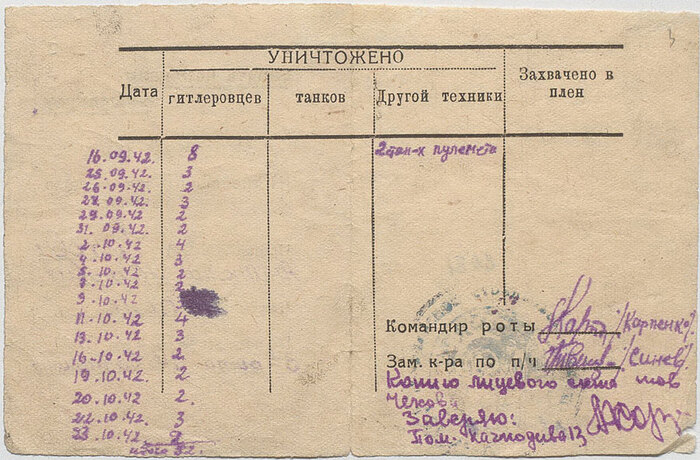 УНИЧТОЖЕНО
Дата гитлеровцев танков Другой техники Захвачено в плен
16.09.42. 8 2 пулемета
25.09.42. 3
26.09.42 2
27.09.42 3
29.09.42 2
31.09.42. 2
2.10.42 4
4.10.42 3
5.10.42 2
7.10.42 2
9.10.42
11.10.42 4
13.10.42 3
16.10.42 2
19.10.42 2
20.10.42 2
22.10.42 3
23.10.42 2
итого 52.
Командир роты /Карпенко/
Зам. к-ра по п/ч /Синев/
Копию лицевого счета тов
Чехов
Заверяю:
Пом. начподива 13